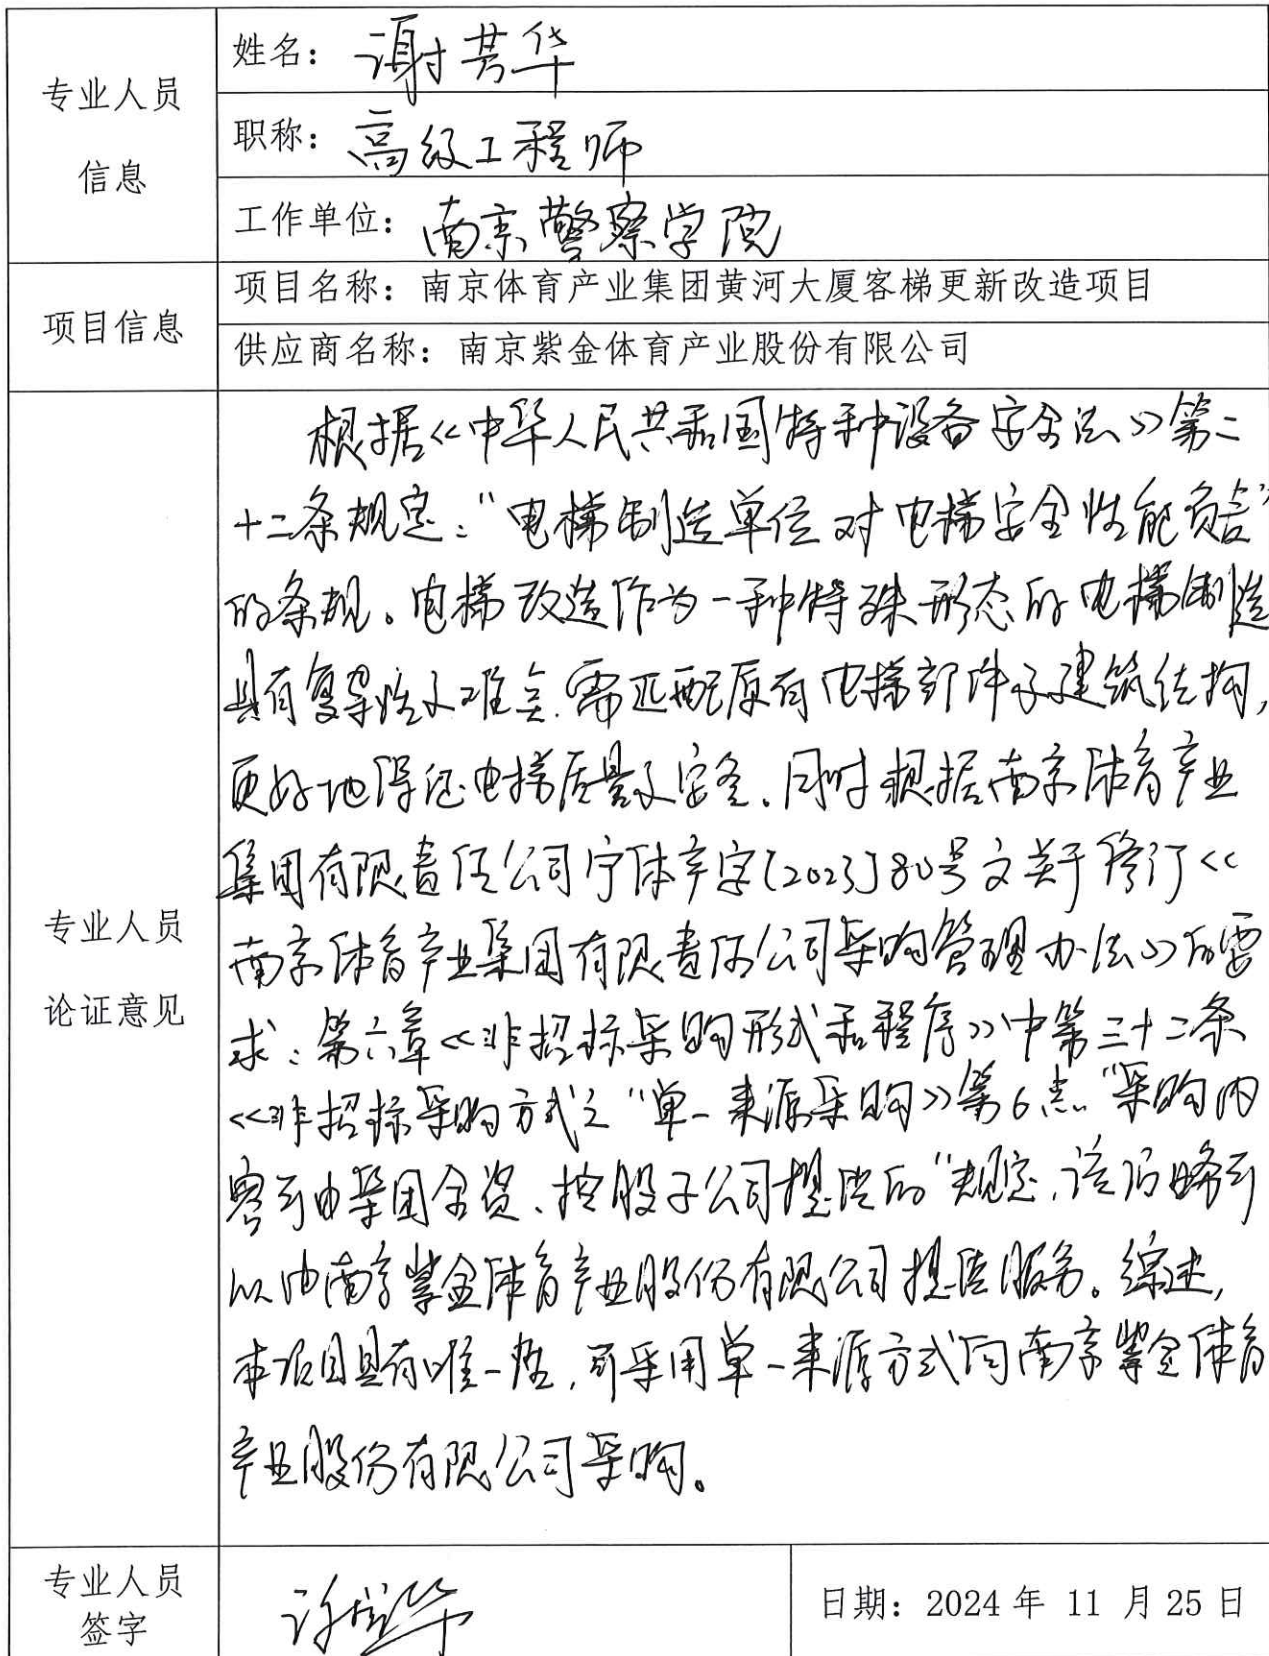 专业人员
信息
姓名：谢芳华
职称：高级工程师
工作单位：南京警察学院
项目信息
项目名称：南京体育产业集团黄河大厦客梯更新改造项目
供应商名称：南京紫金体育产业股份有限公司
专业人员
论证意见
根据《中华人民共和国特种设备安全法》第二
十二条规定："电梯制造单位对电梯安全性能负责"
的条规。电梯改造作为一种特殊形态的电梯制造
具有复杂性及难点.需匹配原有电梯部件及建筑结构,
更好地保证电梯质量及安全.同时根据南京体育产业
集团有限责任公司宁体产字[2023]80号文关于修订《
南京体育产业集团有限责任公司采购管理办法》的要
求:第六章《非招标采购形式和程序》中第三十二条
《非招标采购方式之"单一来源采购》第6点"采购内
容可由集团全资、控股子公司提供的"规定,该服务可
以由南京紫金体育产业股份有限公司提供服务。综述,
本项目具有唯一性,可采用单一来源方式向南京紫金体育
产业股份有限公司采购。
专业人员
签字
日期：2024年 11 月 25 日